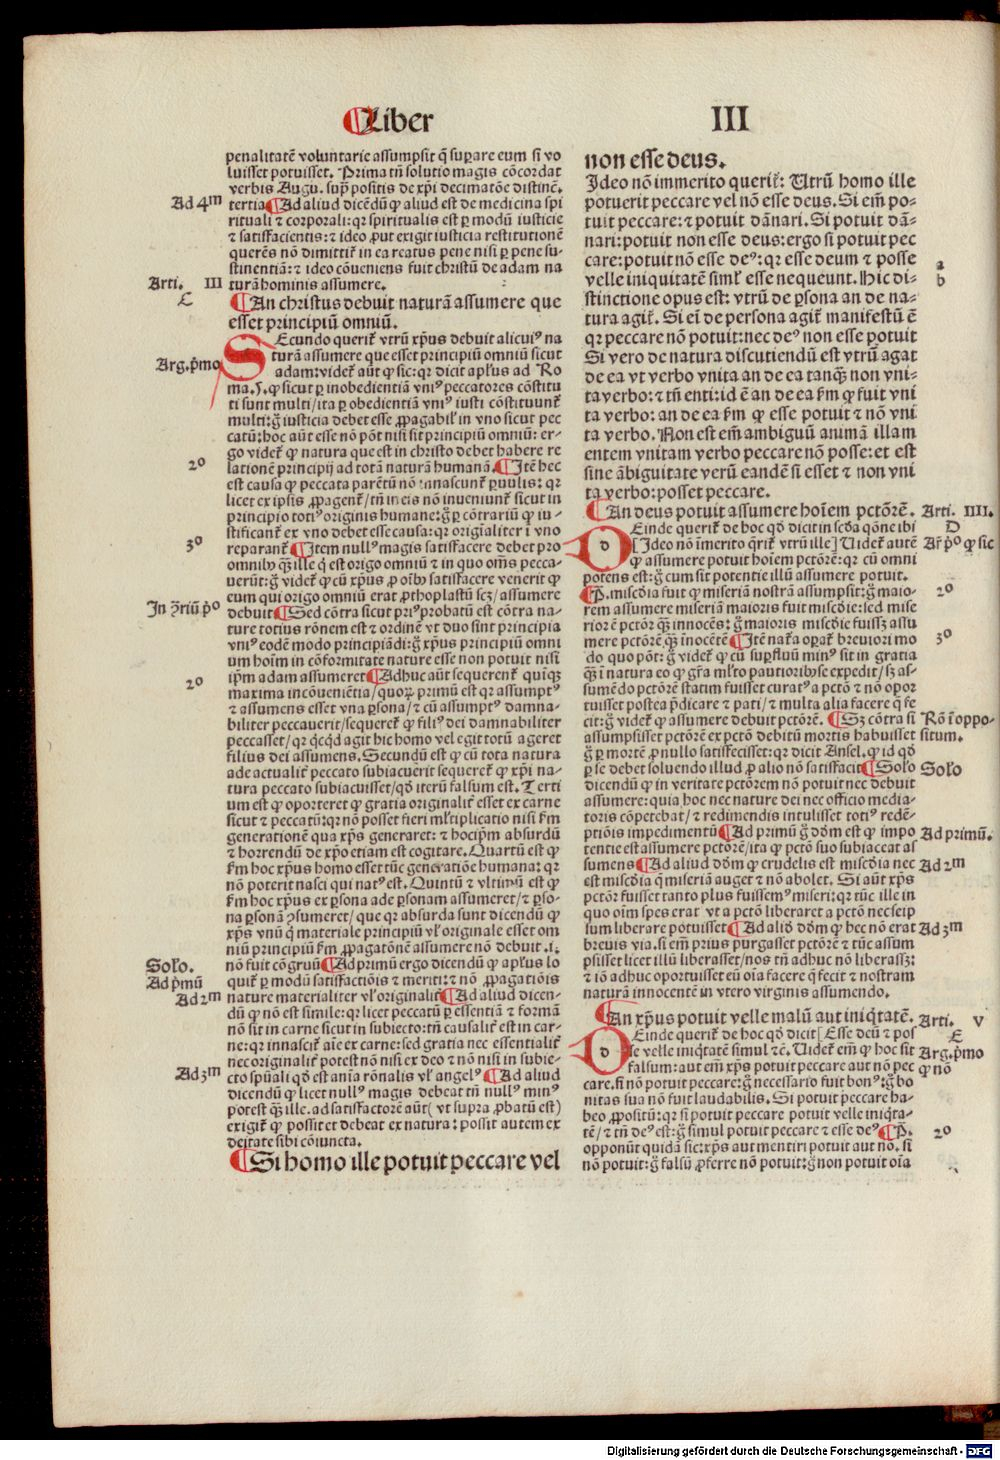 ¶Liber III
penalitatē voluntarie assumpsit q̄ supare eum si vo
luisset potuisset. Prima tn̄ solutio magis cōcordat
verbis Augu. sup̄ positis de xp̄i decimatōne distinc̄.
Ad 4ᵐ
tertia ¶Ad aliud dicēdū ꝙ aliud est de medicina spi
rituali ⁊ corporali: qꝛ spiritualis est ꝑ modū iusticie
⁊ satisfacientis: ⁊ ideo ꝓut exigit iusticia restitutionē
querēs nō dimittit᷑ in ea reatus pene nisi ꝑ pene su-
stinentiā: ⁊ ideo cōueniens fuit christū de adam na
Arti. III
turā hominis assumere.
E
¶An christus debuit naturā assumere que
esset principiū omniū.
Secundo querit᷑ vtrū xp̄us debuit alicuiꝰ na
turā assumere que esset principiū omniū sicut
Arg. p̄mo
adam: videt᷑ aūt ꝙ sic: qꝛ dicit apl̓us ad Ro
ma.5. ꝙ sicut ꝑ inobedientiā vniꝰ peccatores cōstitu
ti sunt multi/ita ꝑ obedientiā vniꝰ iusti cōstituunt᷑
multi: g̊ iusticia debet esse ꝓpagabil̓ in vno sicut pec
catū: hoc aūt esse nō pōt nisi sit principiū omniū: er-
go videt᷑ ꝙ natura que est in christo debet habere re
2º
lationē principij ad totā naturā humanā. ¶Itē hec
est causa ꝙ peccata parētū nō innascunt᷑ ꝑuulis: qꝛ
licet ex ipsis ꝓpagent᷑/tn̄ in eis nō inueniunt᷑ sicut in
principio totiꝰ originis humane: g̊ ꝑ cōtrariū ꝙ iu-
stificant᷑ ex vno debet esse causa: qꝛ origīaliter ī vno
3º
reparant᷑ ¶Item nullꝰ magis satisfacere debet pro
omnibꝰ q̄ꝫ ille q̄ est origo omniū ⁊ in quo om̄s pecca-
uerūt: g̊ videt᷑ ꝙ cū xp̄us ꝓ oībꝰ satisfacere venerit ꝙ
eum qui origo omniū erat ꝓthoplastū scꝫ/assumere
In ɔ̄riū p̊
debuit ¶Sed cōtra sicut priꝰ probatū est cōtra na-
ture totius rōnem est ⁊ ordinē vt duo sint principia
vniꝰ eodē modo principiādi: g̊ xp̄us principiū omni
um hoīm in cōformitate nature esse non potuit nisi
2º
ip̄m adam assumeret ¶Adhuc aūt sequerent᷑ quīqꝫ
maxima incōueniētia/quoꝝ primū est qꝛ assumptꝰ
⁊ assumens esset vna ꝑsona/⁊ cū assumptꝰ damna-
biliter peccauerit/sequeret᷑ ꝙ filiꝰ dei damnabiliter
peccasset/qꝛ q̄cq̄d agit hic homo vel egit totū ageret
filius dei assumens. Secundū est ꝙ cū tota natura
ade actualit᷑ peccato subiacuerit sequeret᷑ ꝙ xp̄i na-
tura peccato subiacuisset/qd̓ iterū falsum est. Terti
um est ꝙ oporteret ꝙ gratia originalit᷑ esset ex carne
sicut ⁊ peccatū: qꝛ nō posset fieri ml̓tiplicatio nisi ẜm
generationē qua xp̄s generaret᷑: ⁊ hoc ip̄m absurdū
⁊ horrendū de xp̄o etiam est cogitare. Quartū est ꝙ
ẜm hoc xp̄us homo esset tūc generatiōe humana: qꝛ
nō poterit nasci qui natꝰ est. Quintū ⁊ vltimū est ꝙ
ẜm hoc xp̄us ex ꝑsona ade ꝑsonam assumeret/⁊ ꝑso-
na ꝑsonā ɔsumeret/que qꝛ absurda sunt dicendū ꝙ
xp̄s vnū q̄ materiale principiū vl̓ originale esset om
niū principiū ẜm ꝓpagatōnē assumere nō debuit .i.
Solo.
nō fuit cōgruū ¶Ad primū ergo dicendū ꝙ apl̓us lo
Ad p̄mū
quit᷑ ꝑ modū satisfactiōis ⁊ meriti: ⁊ nō ꝓpagatiōis
Ad 2ᵐ
nature materialiter vl̓ originalit᷑ ¶Ad aliud dicen-
dū ꝙ nō est simile: qꝛ licet peccatū ꝑ essentiā ⁊ formā
nōn sit in carne sicut in subiecto: tn̄ causalit᷑ est in car-
ne: qꝛ innascit᷑ aīe ex carne: sed gratia nec essentialit᷑
nec originalit᷑ potest nō nisi ex deo ⁊ nō nisi in subie-
Ad 3ᵐ
cto spūali qd̓ est anīa rōnalis vl̓ angelꝰ ¶Ad aliud
dicendū ꝙ licet nullꝰ magis debeat tn̄ nullꝰ minꝰ
potest q̄ꝫ ille. ad satisfactorē aūt (vt supra ꝓbatū est)
exigit᷑ ꝙ possit et debeat ex natura: possit autem ex
deitate sibi cōiuncta.
¶Si homo ille potuit peccare vel
non esse deus.
Ideo nō immerito querit᷑: Utrū homo ille
potuerit peccare vel nō esse deus. Si em̄ po-
tuit peccare: ⁊ potuit dānari. Si potuit dā-
nari: potuit non esse deus: ergo si potuit pec
care: potuit nōn esse deꝰ: qꝛ esse deum ⁊ posse
a
velle iniquitatē siml̓ esse nequeunt. Hic di-
b
stinctione opus est: vtrū de ꝑsona an de na-
tura agit᷑. Si ei̅ de persona agit᷑ manifestū ē
qꝛ peccare nō potuit: nec deꝰ non esse potuit
Si vero de natura discutiendū est vtrū agat
de ea vt verbo vnita an de ea tanq̄ꝫ non vni-
ta verbo: ⁊ tn̄ enti: id ē an de ea ẜm ꝙ fuit vni
ta verbo: an de ea ẜm ꝙ esse potuit ⁊ nō vni
ta verbo. Non est em̄ ambiguū animā illam
entem vnitam verbo peccare nōn posse: et est
sine ābiguitate verū eandē si esset ⁊ non vni
ta verbo: posset peccare.
¶An deus potuit assumere hoīem pctōrē.
Arti. IIII.
D
Deinde querit᷑ de hoc qd̓ dicit in scd̓a q̄one ibi
[Ideo nō īmerito q̄rit᷑ vtrū ille] Uidet᷑ autē
Ar̄ p̊ ꝙ sic
ꝙ assumere potuit hoīem pctōrē: qꝛ cū omni
potens est: g̊ cum sit potentie illū assumere potuit.
2º
¶P. mis̄cdia fuit ꝙ miseriā nostrā assumpsit: g̊ maio-
rem assumere miseriā maioris fuit misc̄die: sed mise
riorē pctōr q̄ꝫ innocēs: g̊ maioris misc̄die fuissꝫ assu
3º
mere pctōrē q̄ꝫ īnocētē ¶Itē nat̓a oꝑat᷑ breuiori mo
do quo pōt: g̊ videt᷑ ꝙ cū suꝑfluū minꝰ sit in gratia
q̄ꝫ ī natura eo ꝙ gr̄a ml̓to pautioribꝰ se expedit/sꝫ as-
sumēdo pctōrē statim fuisset curatꝰ a pctō ⁊ nō opor
tuisset postea p̄dicare ⁊ pati/⁊ multa alia facere q̄ fe
cit: g̊ videt᷑ ꝙ assumere debuit pctōrē. ¶Sꝫ cōtra si
Rō ī oppo-
situm.
assumpsisset pctōrē ex pctō debitū mortis habuisset
g̊ ꝑ mortē ꝓ nullo satisfecisset: qꝛ dicit Ansel. ꝙ id qd̓
Solo
ꝑ se debet soluendo illud ꝓ alio nō satisfacit ¶Solo
dicendū ꝙ in veritate pctōrem nō potuit nec debuit
assumere: quia hoc nec nature dei nec officio media-
toris cōpetebat/⁊ redimendis intulisset totiꝰ redē-
Ad primū.
ptiōis impedimentū ¶Ad primū g̊ dōm est ꝙ impo
tentie est assumere pctōrē/ita ꝙ pctō suo subiaceat as
Ad 2ᵐ
sumens ¶Ad aliud dōm ꝙ crudelis est misc̄dia nec
est misc̄dia q̄ miseriā auget ⁊ nō abolet. Si aūt xp̄s
pctōr fuisset tanto plus fuissemꝰ miseri: qꝛ tūc ille in
quo oīm spes erat vt a pctō liberaret a pctō nec seip
Ad 3ᵐ
sum liberare potuisset ¶Ad aliđ dōm ꝙ hec nō erat
breuis via. si em̄ prius purgasset pctōrē ⁊ tūc assum
psisset licet illū liberasset/nos tn̄ adhuc nō liberassꝫ:
⁊ iō adhuc oportuisset eū oīa facere q̄ fecit ⁊ nostram
naturā innocentē in vtero virginis assumendo.
¶An xp̄us potuit velle malū aut iniq̄tatē.
Arti. V
E
Deinde querit᷑ de hoc qd̓ dicit [Esse deū ⁊ pos
se velle iniq̄tatē simul ⁊c̄. Uidet᷑ em̄ ꝙ hoc sit
Arg. p̄mo
ꝙ nō
falsum: aut em̄ xp̄s potuit peccare aut nō pec
care. si nō potuit peccare: g̊ necessario fuit bonꝰ: g̊ bo
nitas sua nō fuit laudabilis. Si potuit peccare ha-
beo ꝓpositū: qꝛ si potuit peccare potuit velle iniq̄ta-
2º
tē/⁊ tn̄ deꝰ est: g̊ simul potuit peccare ⁊ esse deꝰ ¶P.
opponūt quidā sic: xp̄s aut mentiri potuit aut nō. si
nō potuit: g̊ falsū ꝓferre nō potuit: g̊ non potuit oīa
Digitalisierung gefördert durch die Deutsche Forschungsgemeinschaft - DFG